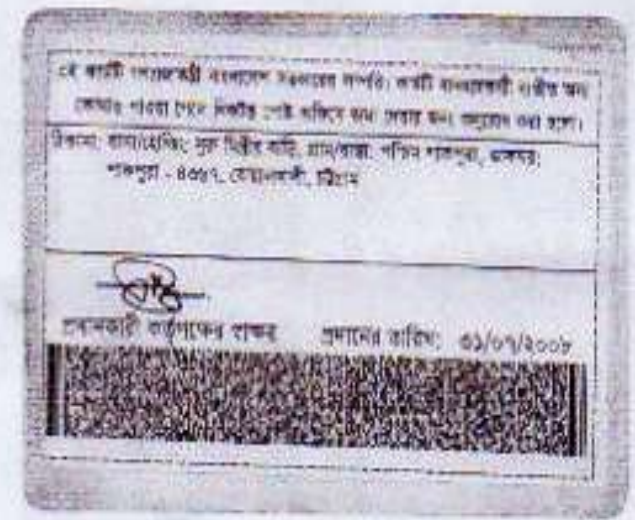 এই কার্ডটি গণপ্রজাতন্ত্রী বাংলাদেশ সরকারের সম্পত্তি। কার্ডটি ব্যবহারকারী ব্যতীত অন্য
কোথাও পাওয়া গেলে নিকটস্থ পোস্ট অফিসে জমা দেবার জন্য অনুরোধ করা হলো।
ঠিকানা: বাসা/হোল্ডিং: বাড়ি, গ্রাম/রাস্তা: পশ্চিম শাকপুরা, ডাকঘর:
শাকপুরা - ৪৩৬৭, বোয়ালখালী, চট্টগ্রাম
প্রদানকারী কর্তৃপক্ষের স্বাক্ষর প্রদানের তারিখ: ৩১/০৭/২০০৮